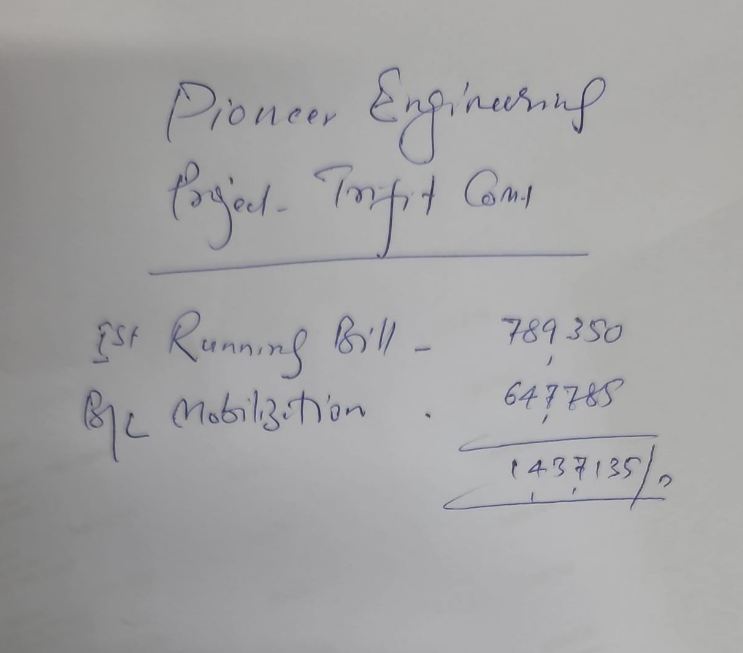 Pioneer Engineering
Project - Trifit Com.
1st Running Bill - 789,350
B/L Mobilization . 647,785
1,437,135/=